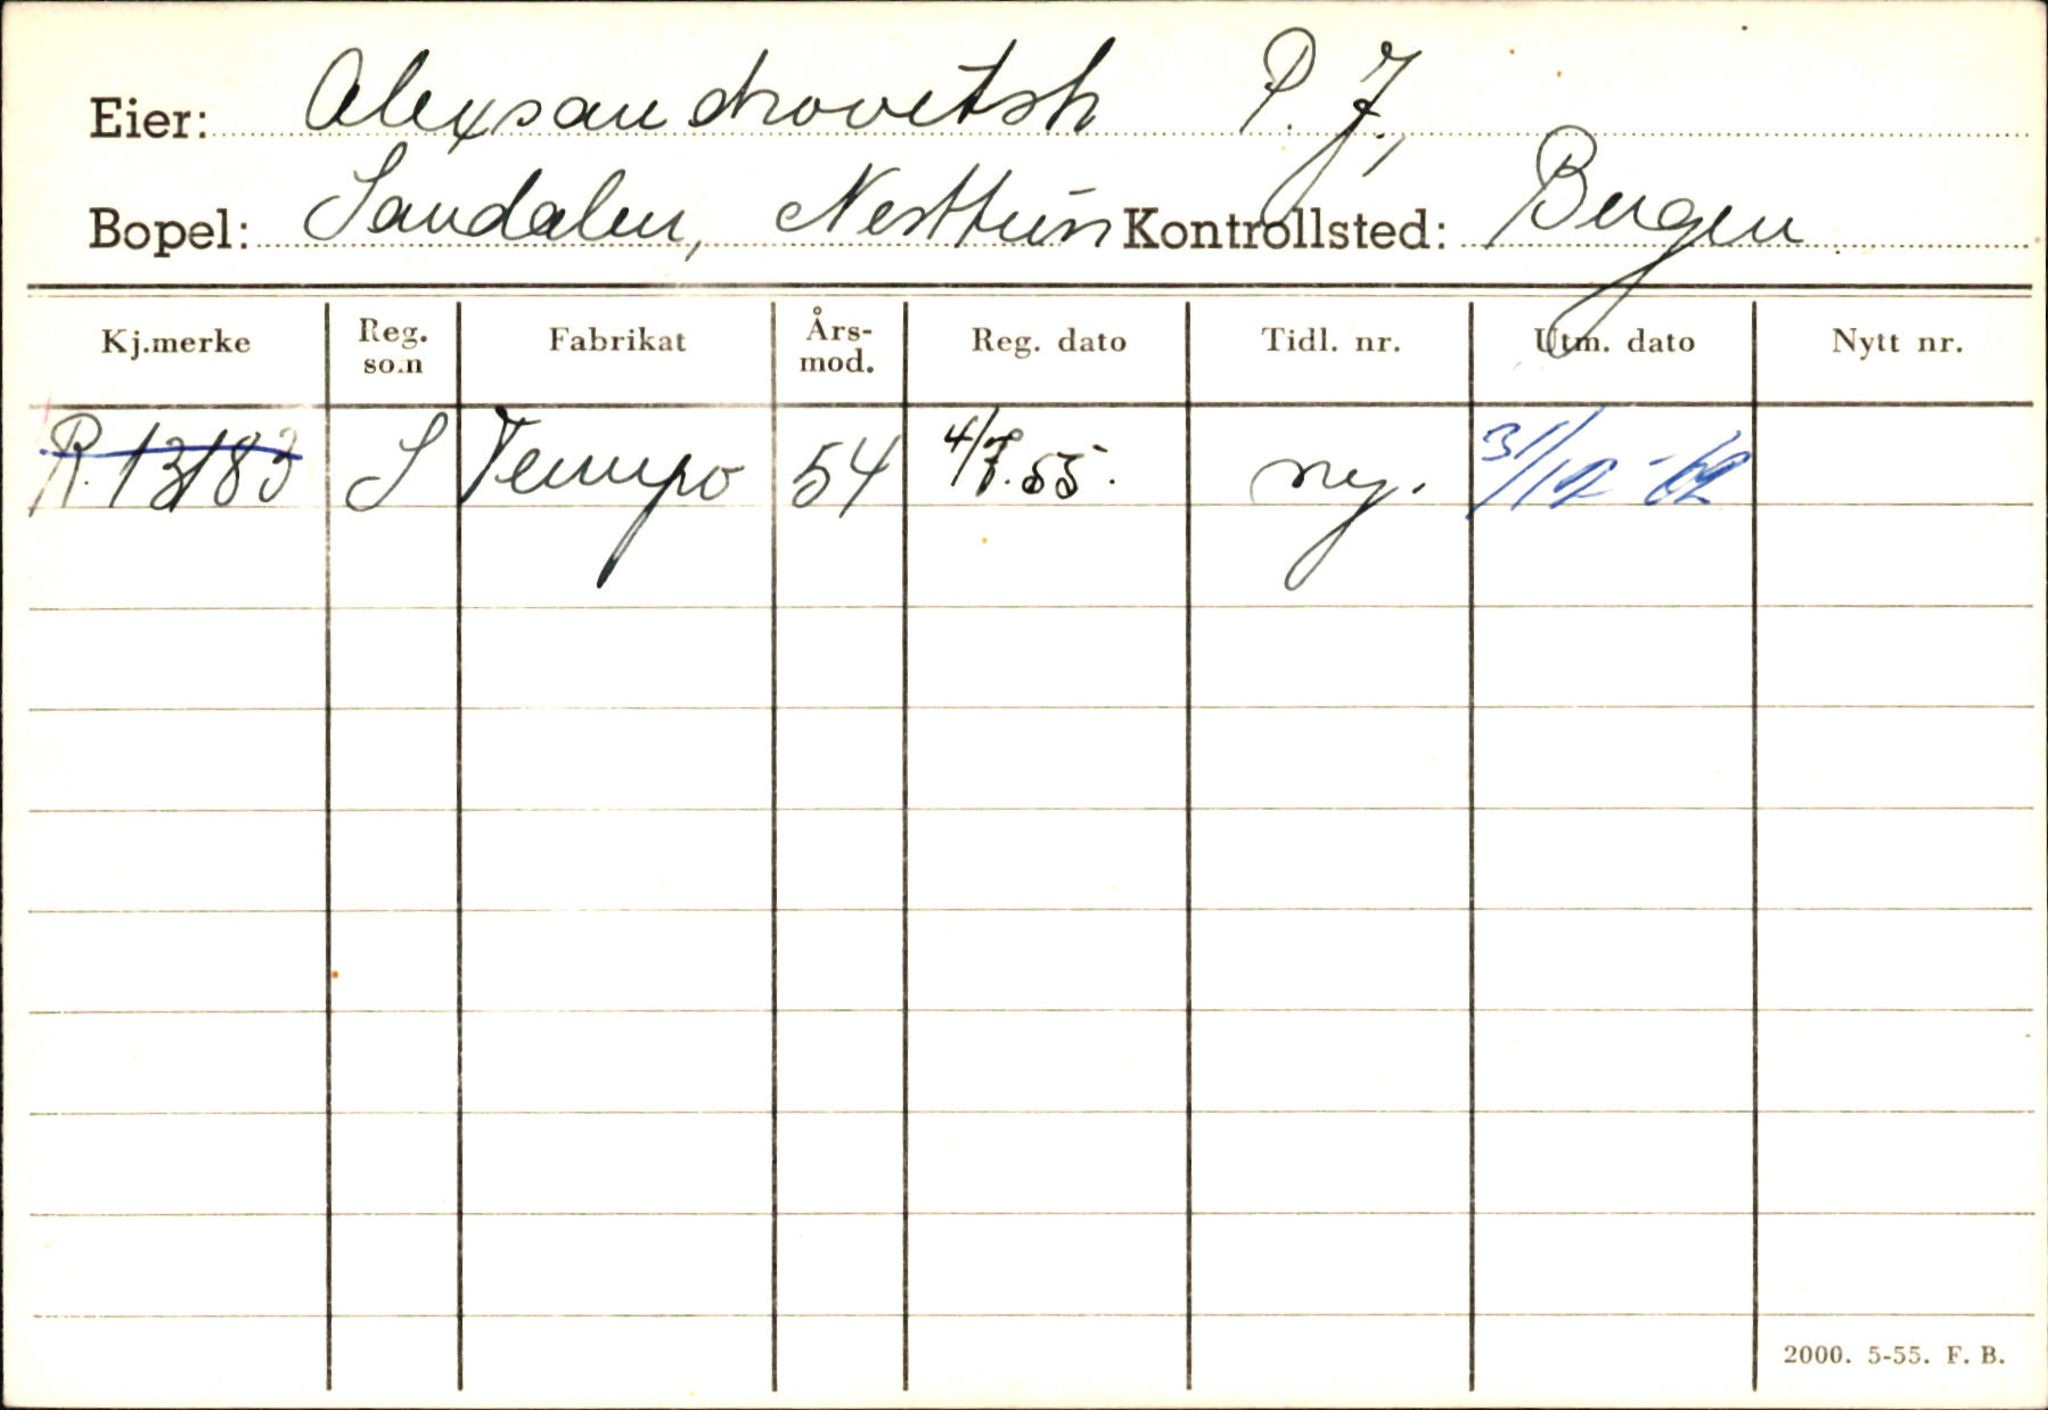 Eier: Alexsandrovitsh P. J.,
Bopel: Sandalen, Nesttun Kontrollsted: Bergen
Kj.merke Reg. som Fabrikat Års-mod. Reg. dato Tidl. nr. Utm. dato Nytt nr.
R. 13183 S Tempo 54 4/7.55. ny. 31/12-62
2000. 5-55. F. B.